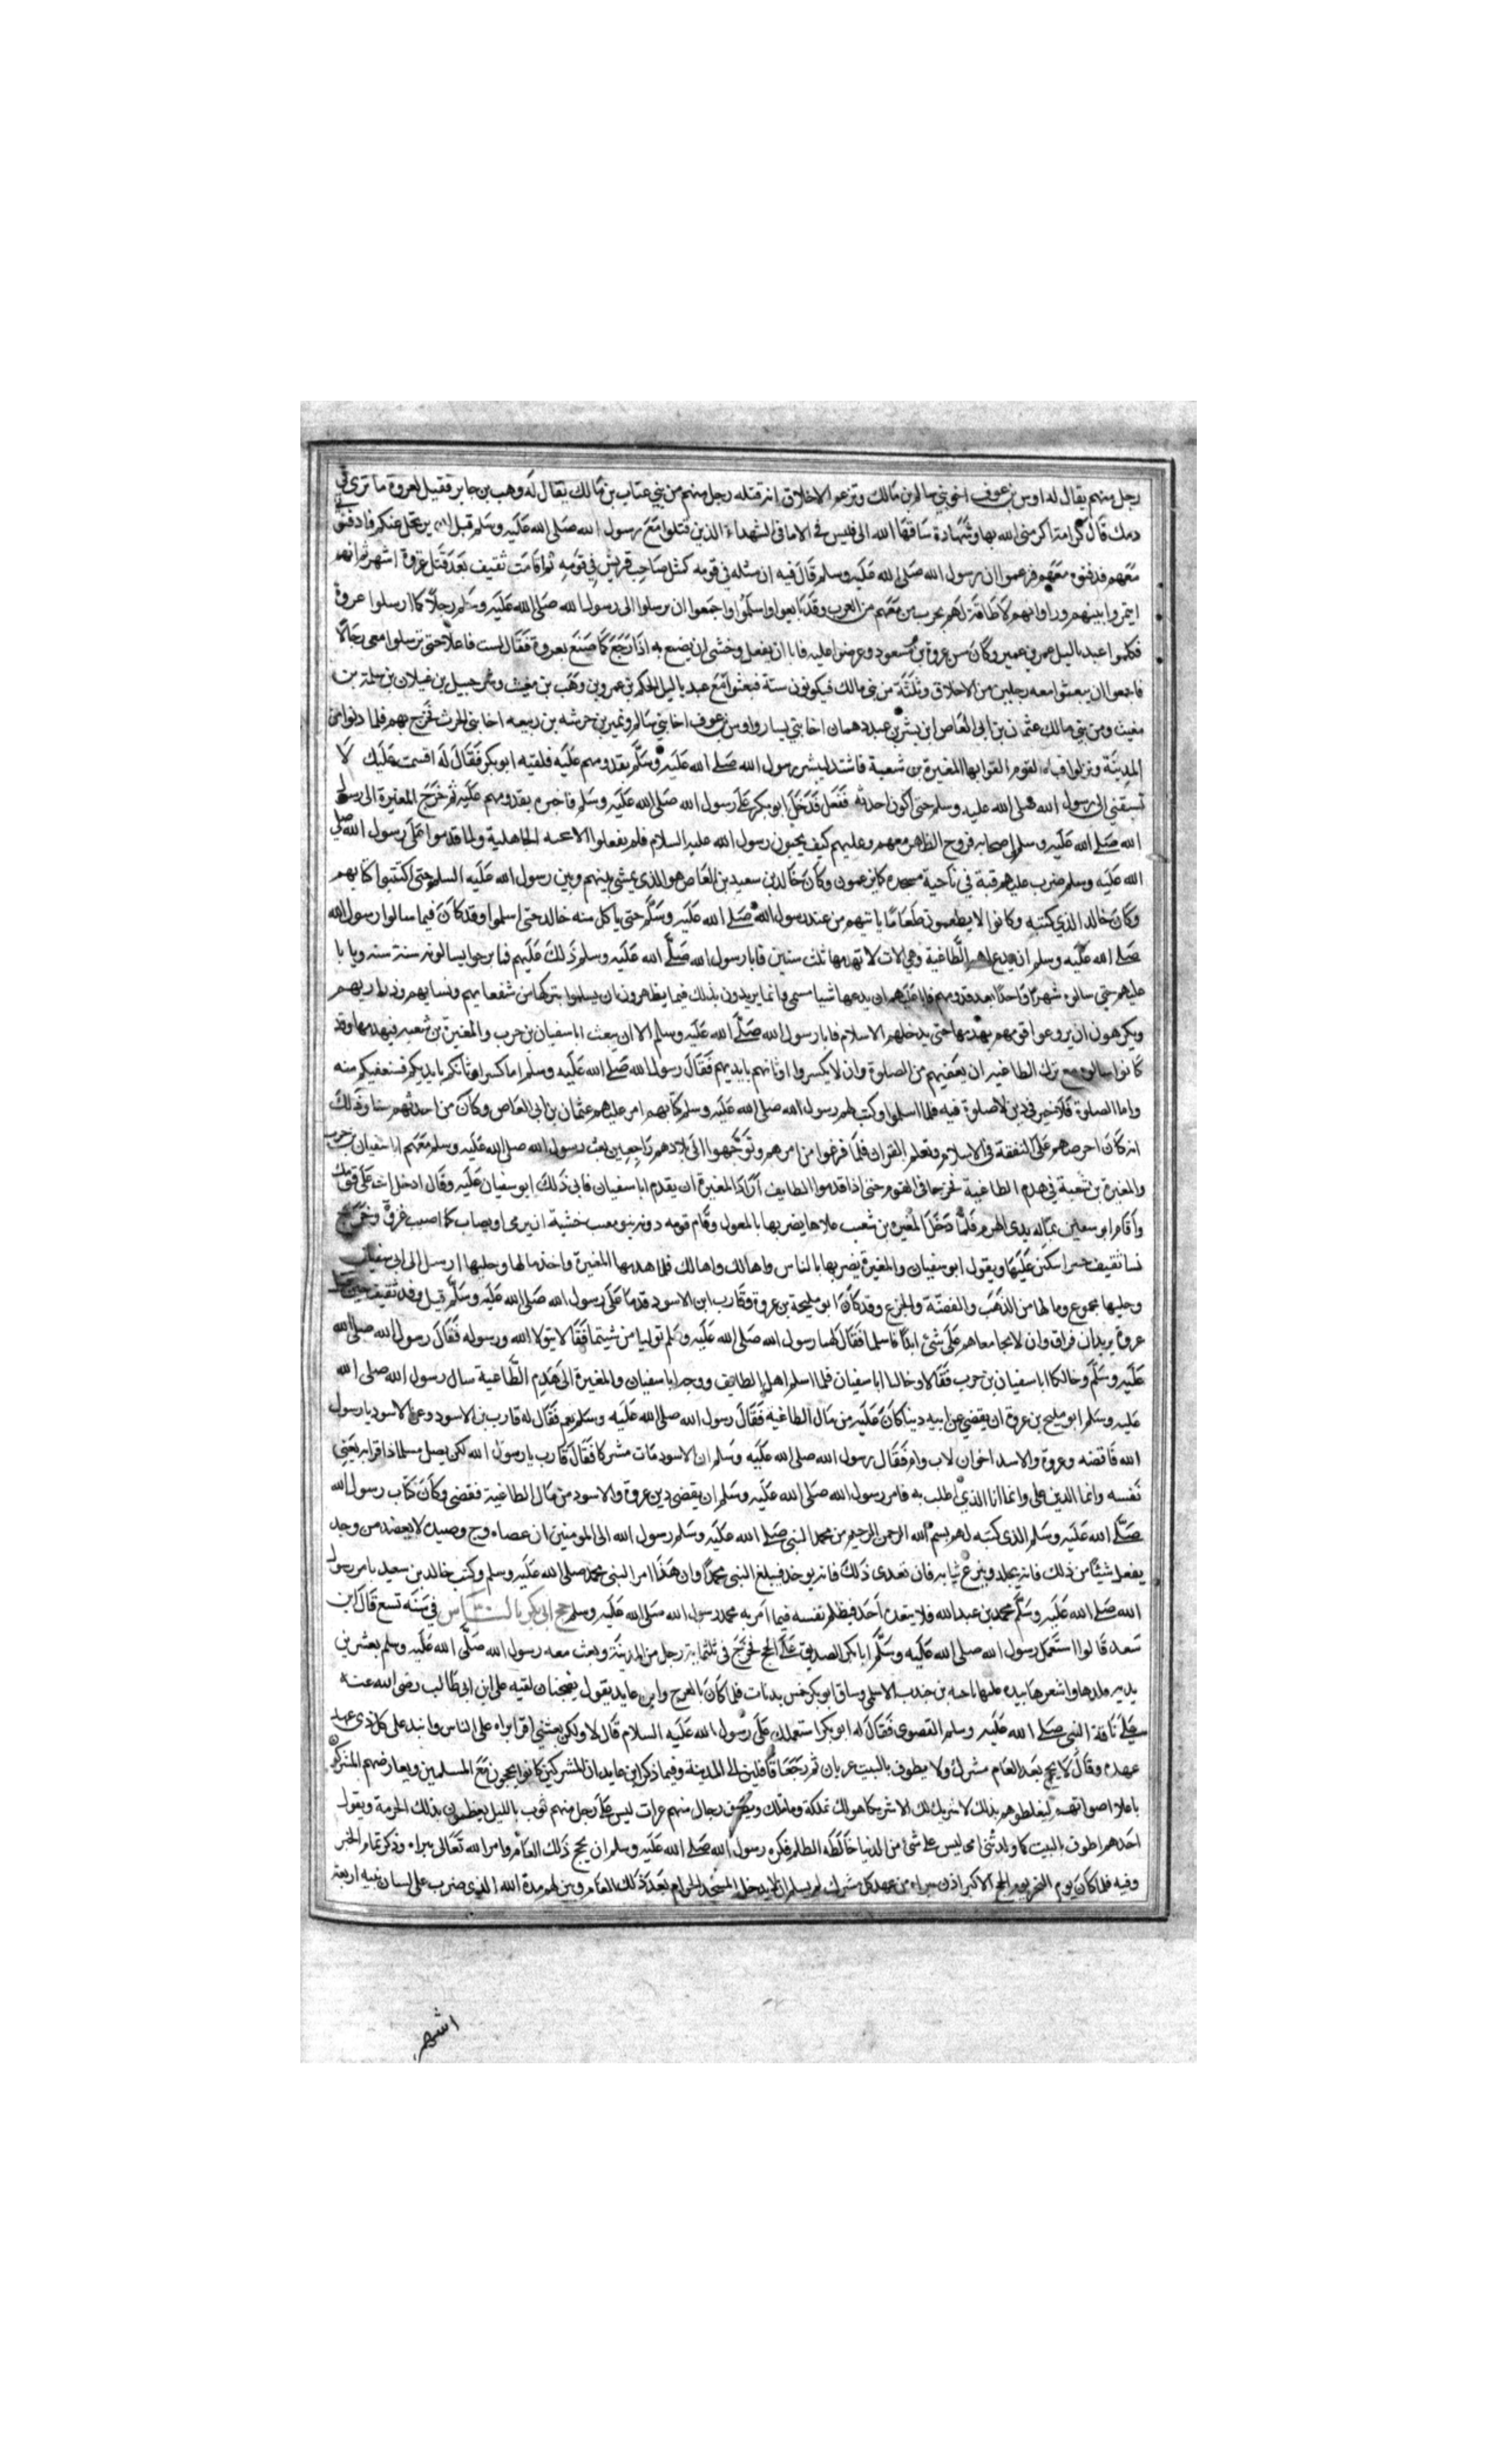 رجل منهم يقال له اوس بن عوف اخو بني سالم بن مالك وتزعم الاخلاق انه قتله رجل منهم من بني عتاب بن مالك يقال له وهب بن جابر فقيل لعروة ما ترى في
دمك قال كرامة اكرمني الله بها وشهادة ساقها الله الى فليس في الا ما في الشهداء الذين قتلوا مع رسول الله صلى الله عليه وسلم قبل ان يرتحل عنكم فادفنوني
معهم فدفنوه معهم فزعموا ان رسول الله صلى الله عليه وسلم قال فيه ان مثله في قومه كمثل صاحب قريش في قومه ثم اقامت ثقيف بعد قتل عروة اشهر ثم انهم
ايتمروا بينهم وراوا انهم لا طاقة لهم بحرب من معهم من العرب وقد بايعوا واسلموا واجمعوا ان يرسلوا الى رسول الله صلى الله عليه وسلم رجلا كما ارسلوا عروة
فكلموا عبد ياليل عمرو بن عمير وكان سن عروة بن مسعود وعرضوا عليه فابا ان يفعل وخشي ان يصنع به اذا رجع كما صنع بعروة فقال لست فاعلا حتى ترسلوا معي رجالا
فاجمعوا ان يبعثوا معه رجلين من الاحلاق وثلثة من بني مالك فيكونون ستة فبعثوا مع عبد ياليل الحكم بن عمرو بن وهب بن مغيث وشرحبيل بن غيلان بن سلمة بن
مغيث ومن بني مالك عثمان بن ابي العاص ابن بشر بن عبد دهمان اخا بني يسار واوس بن عوف اخا بني سالم ونمير بن خرشه بن ربيعه اخا بني الحرث فخرج بهم فلما دنوا من
المدينة ونزلوا قناه القوم القوا بها المغيرة بن شعبة فاشتد ليبشر رسول الله صلى الله عليه وسلم بقدومهم عليه فلقيه ابو بكر فقال له اقسمت عليك لا
تسبقني الى رسول الله صلى الله عليه وسلم حتى اكون احدثه ففعل فدخل ابو بكر على رسول الله صلى الله عليه وسلم فاخبره بقدومهم عليه ثم خرج المغيرة الى رسول
الله صلى الله عليه وسلم اصحابه فروح الظهر معهم وعلمهم كيف يحيون رسول الله عليه السلام فلم يفعلوا الا تحية الجاهلية ولما قدموا على رسول الله صلى
الله عليه وسلم ضرب عليهم قبة في ناحية مسجده كما يزعمون وكان خالد بن سعيد بن العاص هو الذي يمشي بينهم وبين رسول الله عليه السلم حتى اكتتبوا كتابهم
وكان خالد الذي كتبه وكانوا لا يطعمون طعاما ياتيهم من عند رسول الله صلى الله عليه وسلم حتى ياكل منه خالد حتى اسلموا وقد كان فيما سالوا رسول الله
صلى الله عليه وسلم ان يدع لهم الطاغية وهي الات لا تهدمها ثلث سنين فابا رسول الله صلى الله عليه وسلم ذلك عليهم فما برحوا يسالونه سنة سنه ويابا
عليهم حتى سالوه شهرا واحدا بعد قدومهم فابا عليهم ان يدعها شيا مسمى وانما يريدون بذلك فيما يظهرون ان يسلموا بتركها من شفعايهم ونسايهم وذراريهم
ويكرهون ان يروعوا قومهم بهدمها حتى يدخلهم الاسلام فابا رسول الله صلى الله عليه وسلم الا ان يبعث ابا سفيان بن حرب والمغيرة بن شعبه فيهدمها وقد
كانوا سالوه مع ترك الطاغيه ان يعفيهم من الصلوة وان لا يكسروا اوثانهم بايديهم فقال رسول الله صلى الله عليه وسلم اما كسر اوثانكم بايديكم فسنعفيكم منه
واما الصلوة فلا خير في دين لا صلوة فيه فلما اسلموا وكتب لهم رسول الله صلى الله عليه وسلم كتابهم امر عليهم عثمان بن ابي العاص وكان من احدثهم سنا وذلك
انه كان احرصهم على التفقه في الاسلام وتعلم القران فلما فرغوا من امرهم وتوجهوا الى بلادهم راجعين بعث رسول الله صلى الله عليه وسلم معهم ابا سفيان بن حرب
والمغيرة بن شعبة في هدم الطاغية فخرجا في القوم حتى اذا قدموا الطايف اراد المغيرة ان يقدم ابا سفيان فابى ذلك ابو سفيان عليه وقال ادخل انت على قومك
واقام ابو سفين بماله بذي الهرم فلما دخل المغيره بن شعب علاها يضربها بالمعول وقام قومه دونه بنو معب خشية ان يرمى او يصاب كما اصيب عروة وخرج
نسا ثقيف حسرا يبكين عليها ويقول ابو سفيان والمغيرة يضربها بالناس واها لك واها لك فلما هدمها المغيرة واخذ مالها وحليها ارسل الى ابي سفيان
وحليها مجموع ومالها من الذهب والفضة والجزع وقد كان ابو مليحة بن عروة وقارب ابن الاسود قدما على رسول الله صلى الله عليه وسلم قبل وفد ثقيف حين قتل
عروة يريدان فراق وان لا يجامعاهم على شئ ابدا فاسلما فقال لهما رسول الله صلى الله عليه وسلم توليا من شيتما فقالا نتولا الله ورسوله فقال رسول الله صلى الله
عليه وسلم وخالكما ابا سفيان بن حرب فقالا وخالنا ابا سفيان فلما اسلم اهل الطايف ووجه ابا سفيان والمغيرة الى هدم الطاغية سال رسول الله صلى الله
عليه وسلم ابو مليح بن عروة ان يقضي عن ابيه دينا كان عليه من مال الطاغية فقال رسول الله صلى الله عليه وسلم نعم فقال له قارب بن الاسود وعن الاسود يا رسول
الله فاقضه وعروة والاسد اخوان لاب وام فقال رسول الله صلى الله عليه وسلم ان الاسود مات مشركا فقال قارب يا رسول الله لكن يصل مسلما ذا قرابه يعني
نفسه وانما الدين علي وانما انا الذي اطلب به فامر رسول الله صلى الله عليه وسلم ان يقضي دين عروة والاسود من مال الطاغية فقضى وكان كتاب رسول الله
صلى الله عليه وسلم الذي كتبه لهم بسم الله الرحمن الرحيم من محمد النبي صلى الله عليه وسلم رسول الله الى المومنين ان عصاه وج وصيده لا يعضد من وجد
يفعل شيئا من ذلك فانه يجلد وينزع ثيابه فان تعدى ذلك فانه يوخذ فيبلغ النبي محمدا وان هذا امر النبي محمد صلى الله عليه وسلم وكتب خالد بن سعيد بامر رسول
الله صلى الله عليه وسلم محمد بن عبد الله فلا يتعده احد فيظلم نفسه فيما امر به محمد رسول الله صلى الله عليه وسلم حج ابي بكر بالناس في سنه تسع قال ابن
سعد قالوا استعمل رسول الله صلى الله عليه وسلم ابا بكر الصديق على الحج فخرج في ثلثماية رجل من المدينة وبعث معه رسول الله صلى الله عليه وسلم بعشرين
بدنه قلدها واشعرها بيده عليها ناجيه بن جندب الاسلمي وساق ابو بكر خمس بدنات فلما كان بالعرج وابن عايد يقول بضجنان لقيه على ابن ابي طالب رضي الله عنه
على ناقة النبي صلى الله عليه وسلم القصوى فقال له ابو بكر استعملك على رسول الله عليه السلام قال لا ولكن بعثني اقرا براه على الناس وانبذ على كل ذي عهد
عهده وقال لا يحج بعد العام مشرك ولا يطوف بالبيت عريان ثم رجعا قافلين الى المدينة وفيما ذكر ابن عايد ان المشركين كانوا يحجون مع المسلمين ويعارضهم المشركون
باعلا اصواتهم ليغلطوهم بذلك لا شريك لك الا شريكا هو لك تملكه وما ملك ويطوف رجال منهم عراة ليس على رجل منهم ثوب بالليل يعظمون بذلك الحرمة ويقول
احدهم اطوف بالبيت كما ولدتني امي ليس على شئ من الدنيا خالطه الظلم فكره رسول الله صلى الله عليه وسلم ان يحج ذلك العام وامر الله تعالى ببراه وذكر تمام الخبر
وفيه فلما كان يوم النحر يوم الحج الاكبر اذن ببراه من عهد كل مشرك لم يسلم ان لا يدخل المسجد الحرام بعد ذلك العام وبين لهم مدة الله الذي ضرب على لسان نبيه اربعة
اشهر